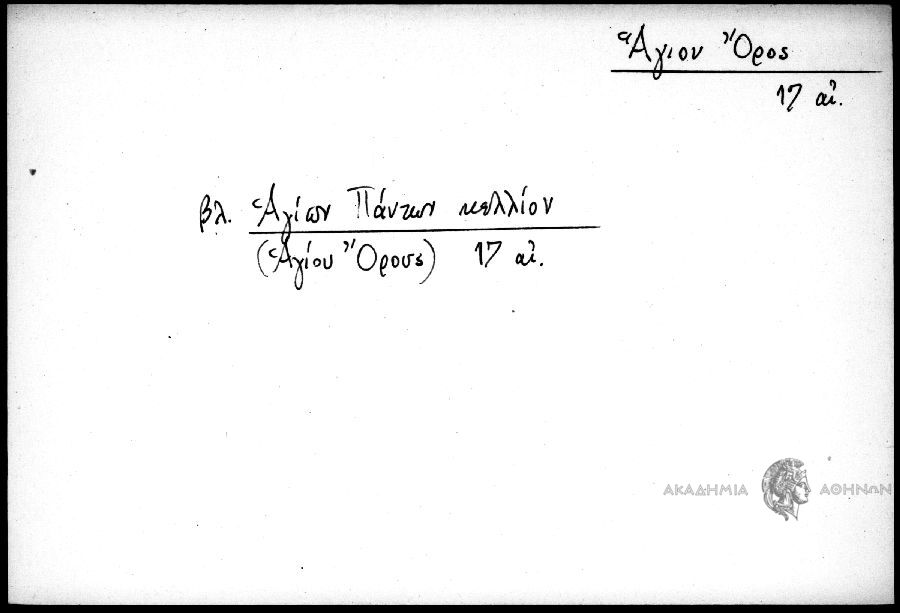 Ἅγιον Ὄρος
17 αἰ.
βλ. Ἁγίων Πάντων κελλίον
(Ἁγίου Ὄρους) 17 αἰ.
ΑΚΑΔΗΜΙΑ ΑΘΗΝΩΝ